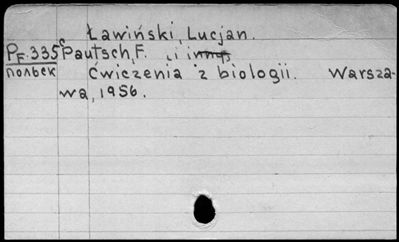 Ławiński, Lucjan.
Pf-335c Pautsch, F. i inny
польск Ćwiczenia z biologii. Warsza-
wa, 1956.